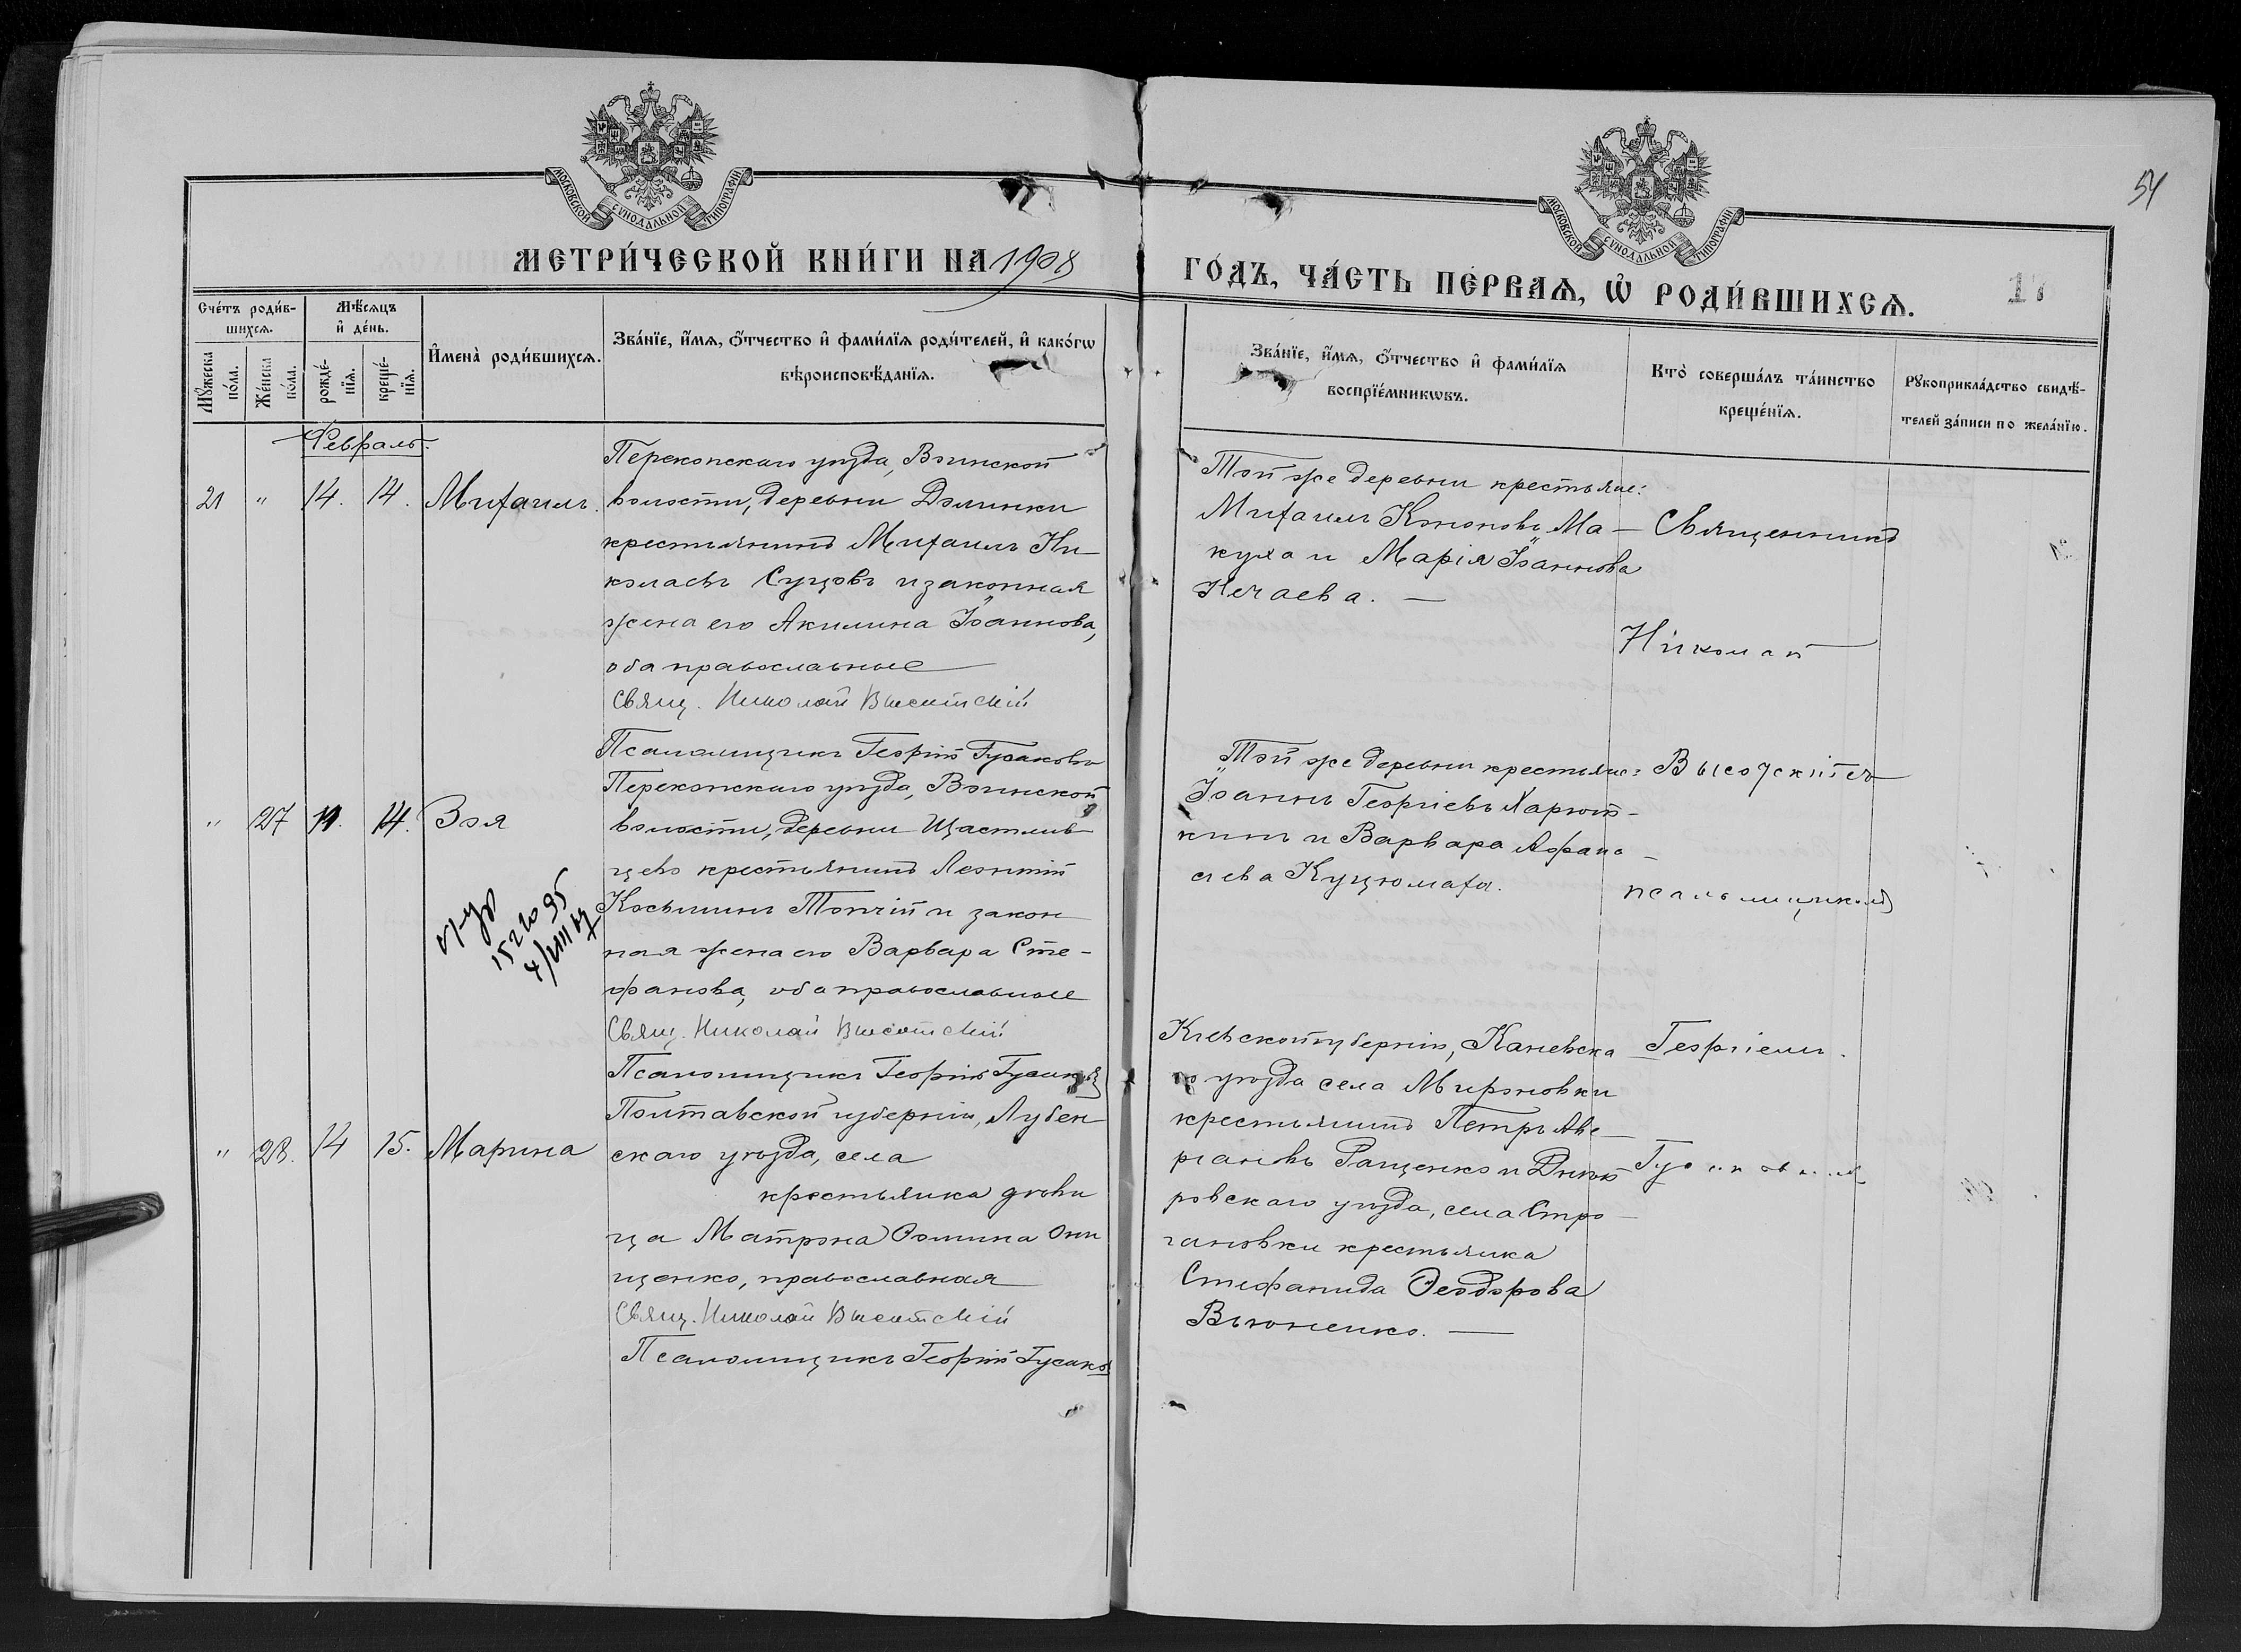 54
МОСКОВСКОЙ СѴНОДАЛЬНОЙ ТИПОГРАФІИ
МОСКОВСКОЙ СѴНОДАЛЬНОЙ ТИПОГРАФІИ
МЕТРИ́ЧЕСКОЙ КНИ́ГИ НА 1908
ГО́ДЪ, ЧА́СТЬ ПЕ́РВАѦ, Ѡ҆ РОДИ́ВШИХСѦ.
Сче́тъ роди́в-
шихсѧ.
Мꙋ́жеска
по́ла.
Же́нска
по́ла.
Мѣ́сѧцъ
и҆ де́нь.
рожде́-
нїѧ.
креще́-
нїѧ.
И҆мена̀ роди́вшихсѧ.
Зва́нїе, и҆́мѧ, ѻ҆́тчество и҆ фами́лїѧ роди́телей, и҆ како́гѡ
вѣроисповѣ́данїѧ.
Зва́нїе, и҆́мѧ, ѻ҆́тчество и҆ фами́лїѧ
воспрїе́мникѡвъ.
Кто̀ соверша́лъ та́инство
креще́нїѧ.
Рꙋкоприкла́дство свидѣ́-
телей за́писи по жела́нїю.
Февраль.
21 " 14. 14. Михаилъ.
Перекопскаго уѣзда, Воинской
волости, деревни Долинки
крестьянинъ Михаилъ Ни-
колаевъ Сущовъ и законная
жена его Акилина Іоаннова,
оба православные
Свящ. Николай Высотскій
Псаломщикъ Георгій Гусаковъ
Той же деревни крестьяне:
Михаилъ Кононовъ Ма-
куха и Марія Іоаннова
Нечаева. —
Священникъ
Николай
Высотскій съ
псаломщикомъ
Георгіемъ
Гусаковымъ
" 27 11. 14. Зоя
Перекопскаго уѣзда, Воинской
волости, деревни Щастлив-
цево крестьянинъ Леонтій
Косьминъ Топчій и закон
ная жена его Варвара Сте-
фанова, оба православные
Свящ. Николай Высотскій
Псаломщикъ Георгій Гусаковъ
Той же деревни крестьяне:
Іоаннъ Георгіевъ Харют-
кинъ и Варвара Афана-
сіева Куцюмаха.
" 28. 14 15. Марина
Полтавской губерніи, Лубен
скаго уѣзда, села
крестьянка дѣви
ца Матрона Ѳомина Они
щенко, православная
Свящ. Николай Высотскій
Псаломщикъ Георгій Гусаковъ
Кіевской губерніи, Каневска
го уѣзда села Мироновки
крестьянинъ Петръ Аве-
ріановъ Ращенко и Днѣп
ровскаго уѣзда, села Стро-
гановки крестьянка
Стефанида Ѳеодорова
Вьюненко. —